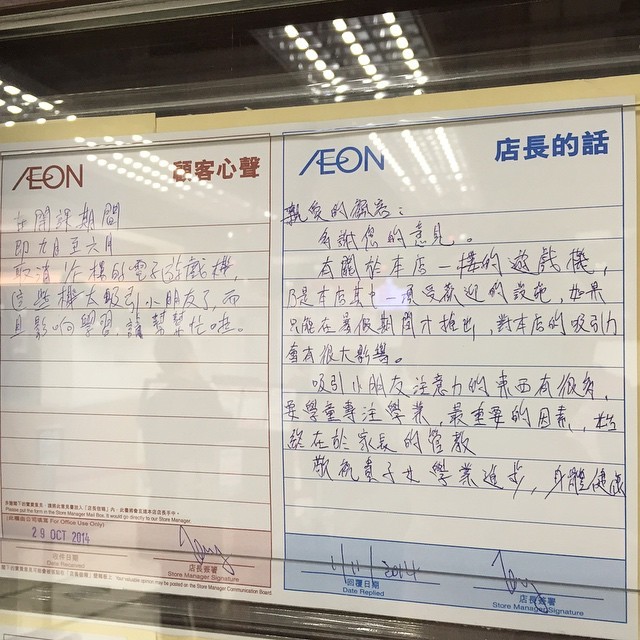 ÆON
顧客心聲
在開課期間
即九月至六月
取消 樓的電子遊戲機,
這些機太吸引小朋友了,而
且影响學習,請幫幫忙啦。
Please put the form in the Store Manager Mail Box. It would go directly to our Store Manager.
(For Office Use Only)
29 OCT 2014
收件日期
Date Received
店長簽署
Store Manager Signature
Your valuable opinion may be posted on the Store Manager Communication Board
ÆON
店長的話
親愛的顧客:
多謝您的意見。
有關於本店一樓的遊戲機,
乃是本店其中一項受歡迎的設施,如果
只能在暑假期間才推出,對本店的吸引力
會有很大影響。
吸引小朋友注意力的東西有很多,
要學童專注學業,最重要的因素,
在於家長的管教
敬祝貴子女學業進步,身體健康
1/11/2014
回覆日期
Date Replied
店長簽署
Store Manager Signature